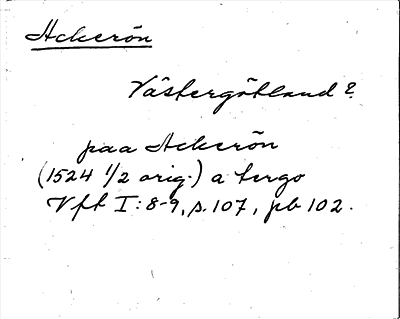 Ackerön
Västergötland?
paa Ackerön
(1524 1/2 orig.) a tergo
Vft I:8-9, s.107, pb 102.